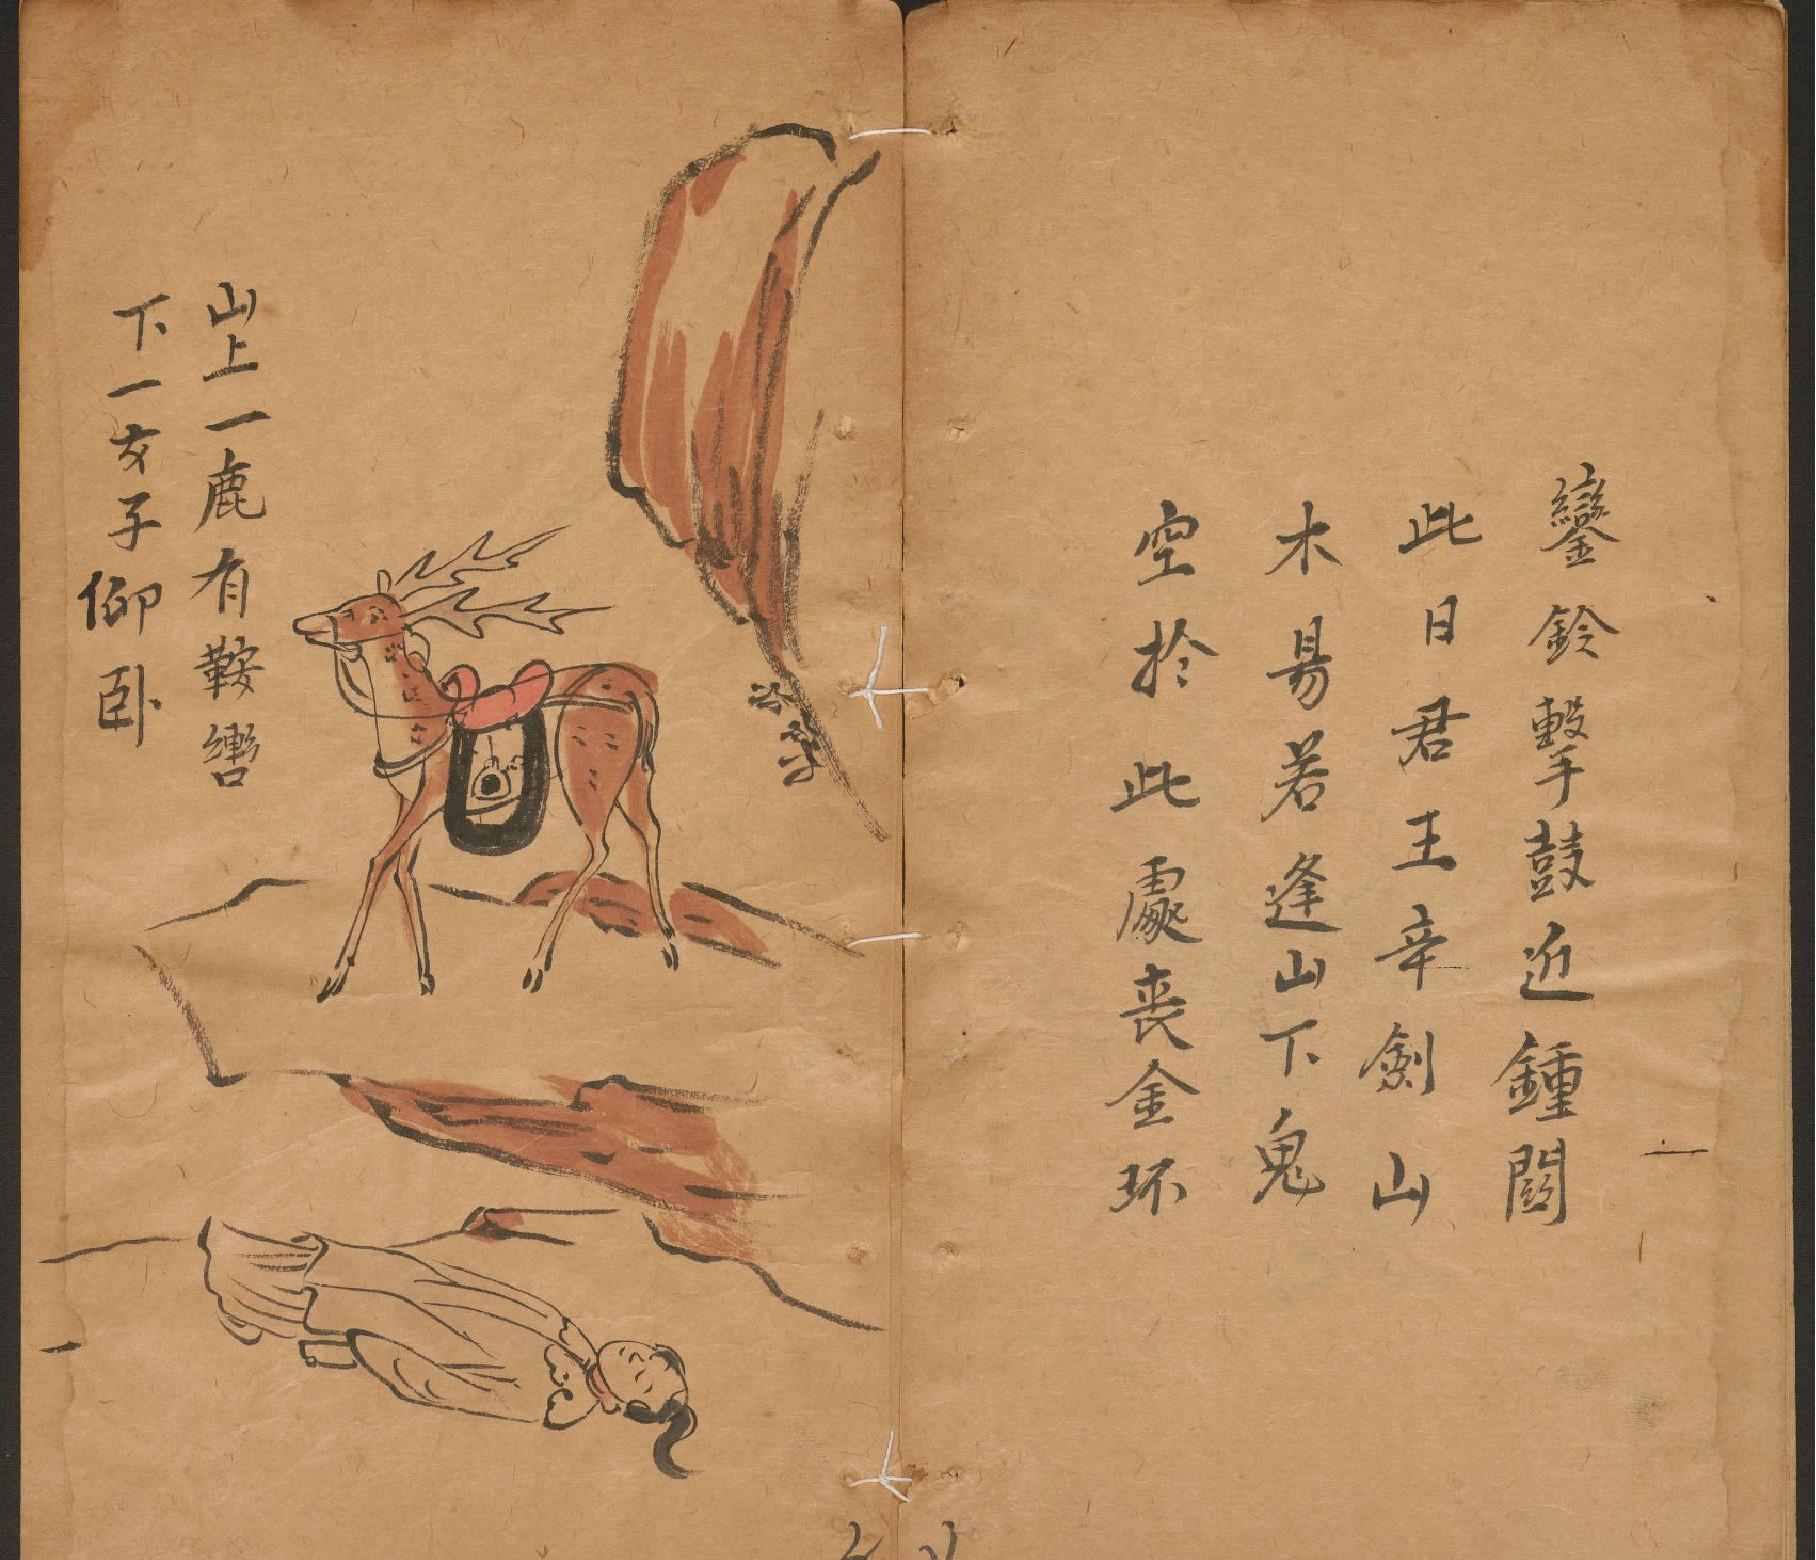 鑾鈴擊鼓近鍾
此日君王幸劍山
木易若逢山下鬼
定於此處喪金环
山上一鹿有鞍轡
下一女子仰臥